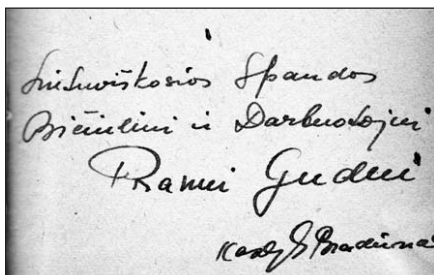 Lietuviškosios Spaudos
Bičiuliui ir Darbuotojui
Pranui Gudui
Kazys Bradūnas